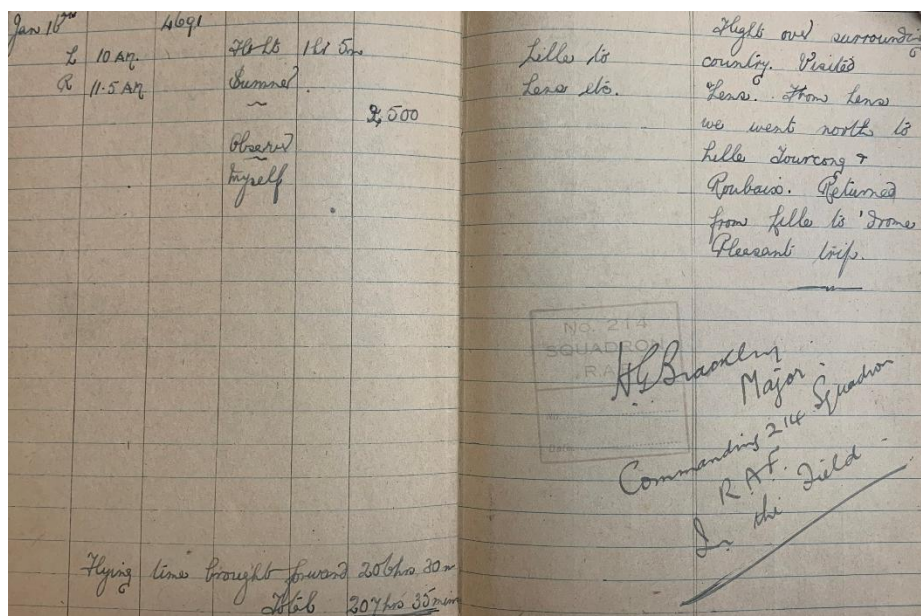 Jan 16th 4691
L 10 AM. Flt Lt 1hr 5m
R 11.5 AM Sumner.
2,500
Observer
Myself
Lille to
Lens etc.
Flight over surrounding
country. Visited
Lens. From Lens
we went north to
Lille Tourcong &
Roubaix. Returned
from Lille to 'Drome
Pleasant trip.
No. 214
SQUADRON
R.A.F.
Date
H G Brackley
Major.
Commanding 214 Squadron
R.A.F.
In the Field.
Flying time brought forward 206hrs 30m
Total 207hrs 35mins